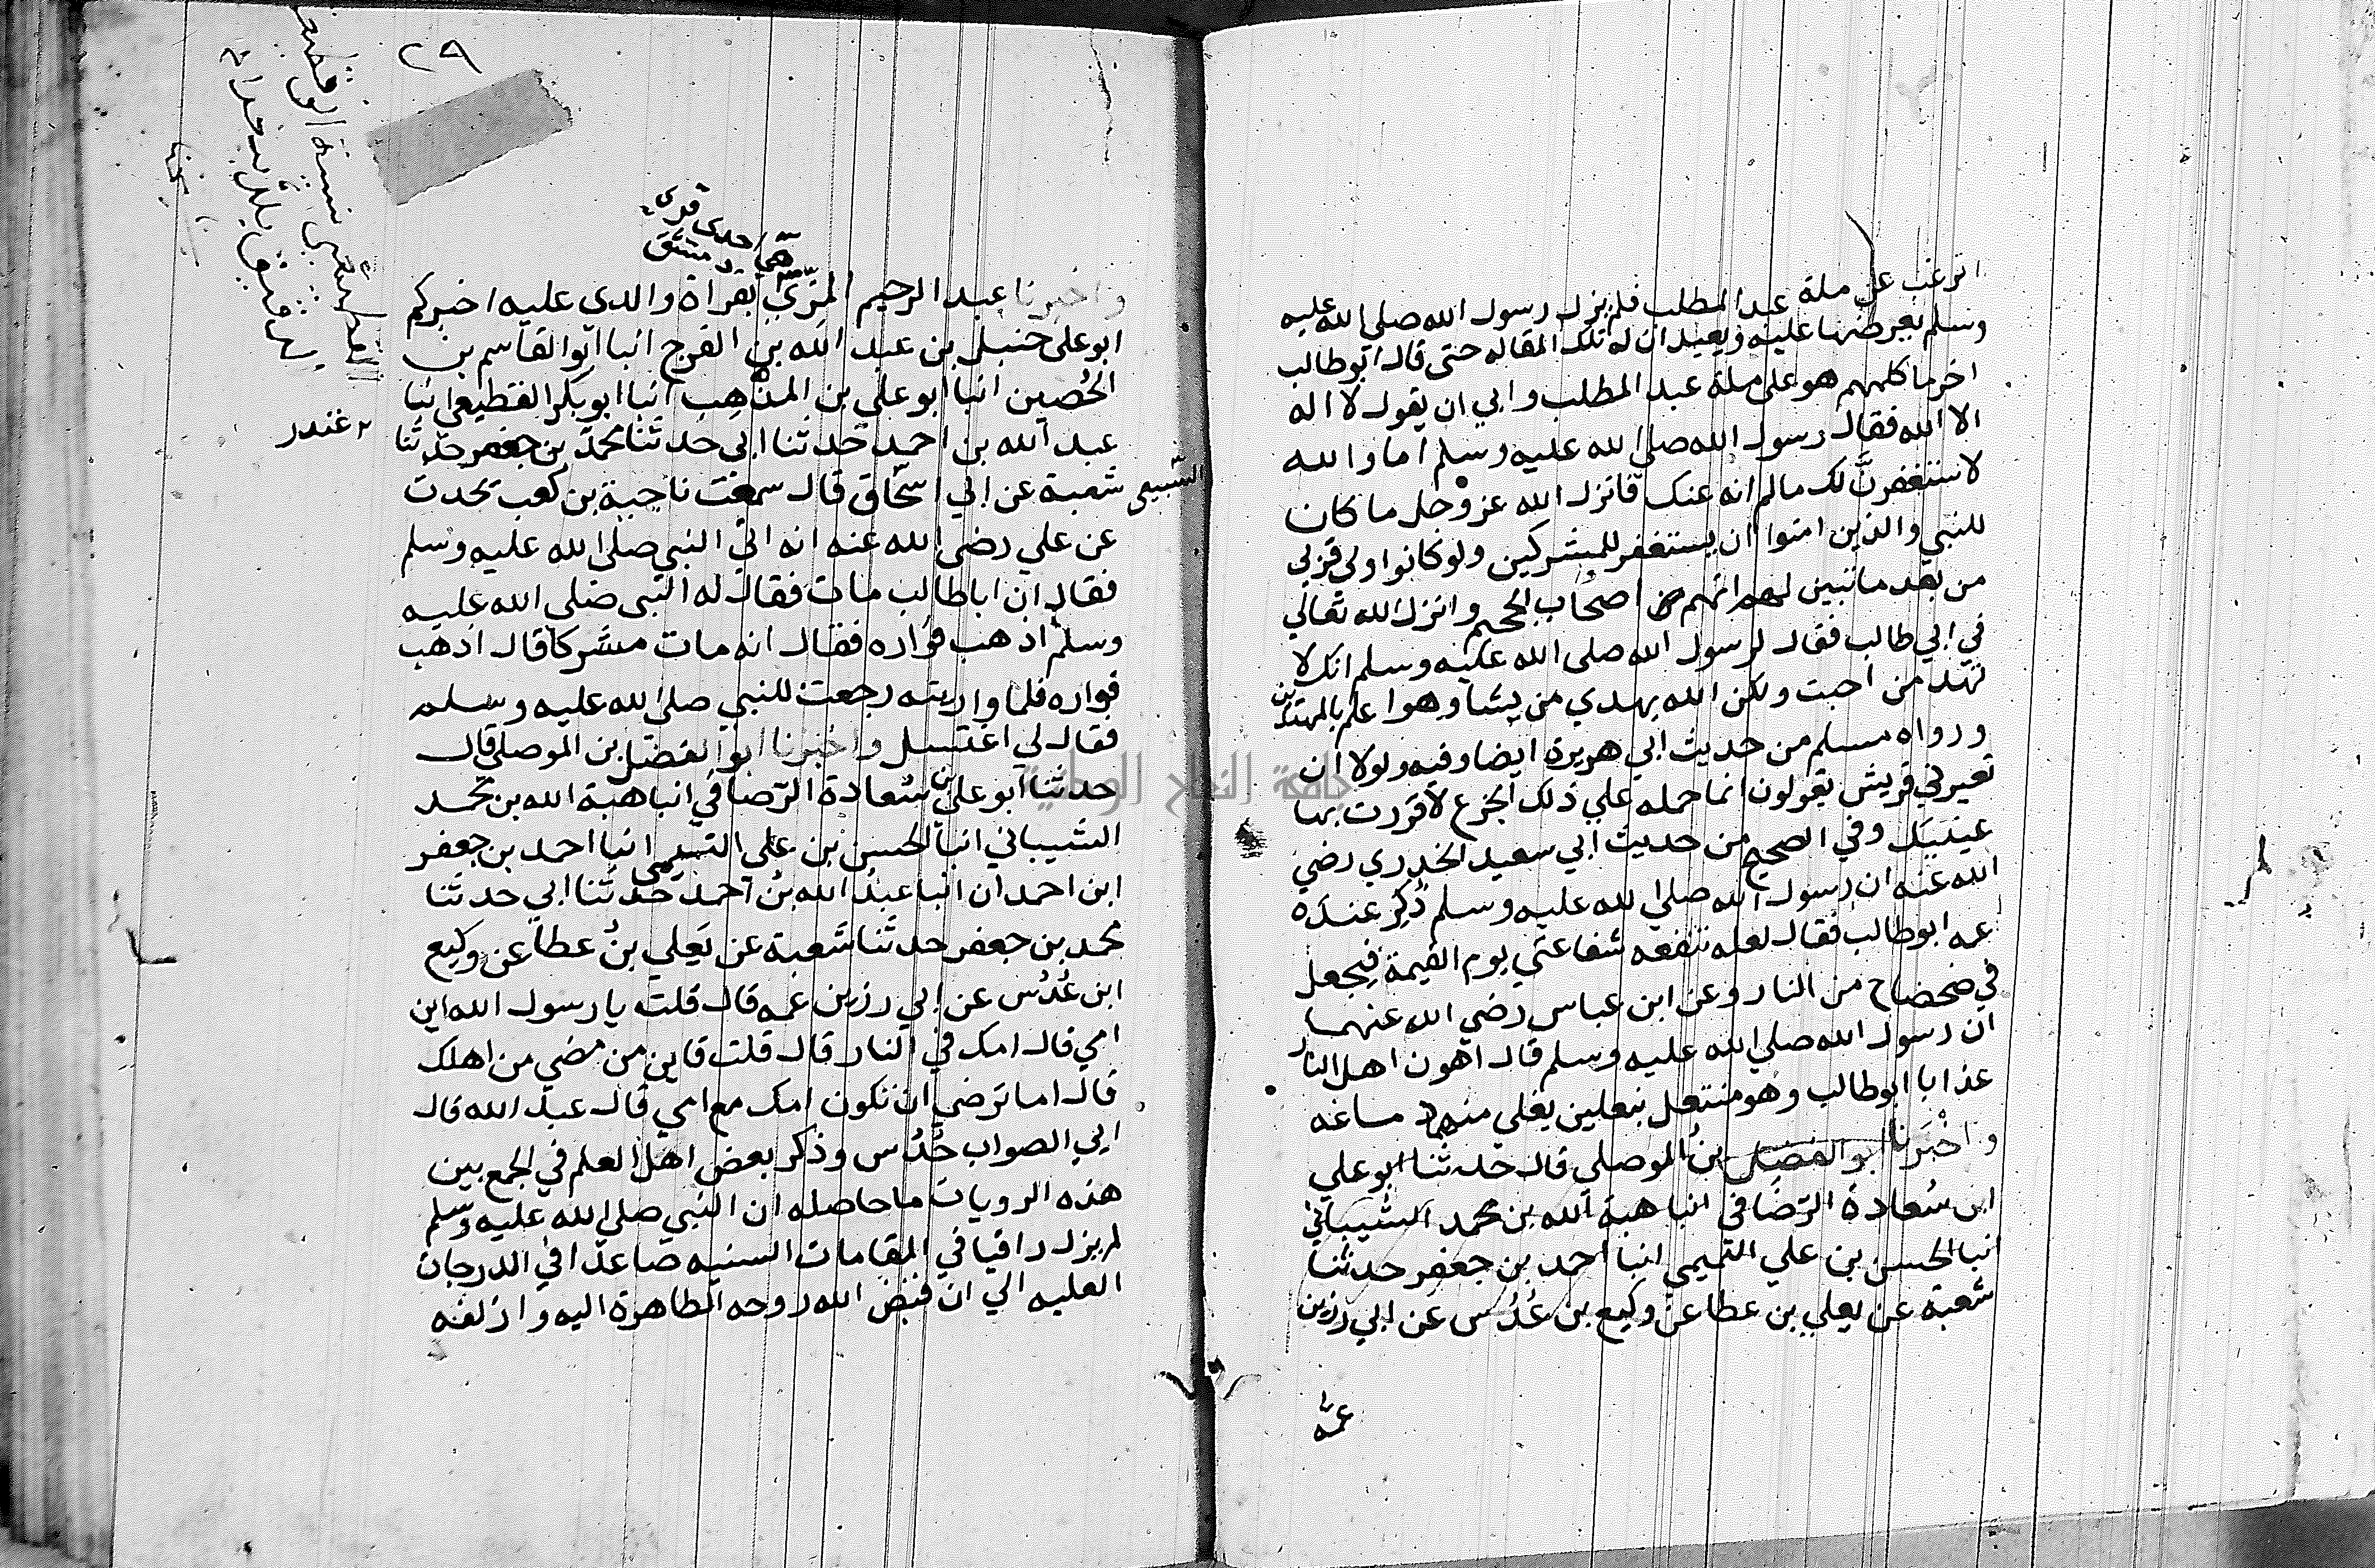 اترغب عن ملة عبد المطلب فلم يزل رسول الله صلى الله عليه
وسلم يعرضها عليه ويعيدان له تلك المقاله حتى قال ابو طالب
اخر ما كلمهم هو على ملة عبد المطلب وابي ان يقول لا اله
الا الله فقال رسول الله صلى الله عليه وسلم اما والله
لاستغفرنَّ لك مالم انه عنك فانزل الله عز وجل ما كان
للنبي والذين امنوا ان يستغفر للمشركين ولو كانوا اولي قربي
من بعد ما تبين لهم انهم من اصحاب الجحيم وانزل الله تعالي
في ابي طالب فقال لرسول الله صلى الله عليه وسلم انك لا
تهد من احبت ولكن الله يهدي من يشا وهو اعلم بالمهتدين
ورواه مسلم من حديث ابي هريرة ايضا وفيه ولولا ان
تعيرني قريش يقولون انما حمله علي ذلك الجزع لاقررت بها
عينيك وفي الصحيح من حديث ابي سعيد الخدري رضي
الله عنه ان رسول الله صلي الله عليه وسلم ذُكِر عنده
عمه ابو طالب فقال لعله تنفعه شفاعتي يوم القيمة فيجعل
في ضحضاح من النار وعن ابن عباس رضي الله عنهما
ان رسول الله صلي الله عليه وسلم قال اهون اهل النار
عذابا ابو طالب وهو منتعل بنعلين يغلي منهما دماغه
واخبرنا ابو الفضل بن الموصلي قال حدثنا ابو علي
ابن سُعادة الرّصافي انبا هبة الله بن محمد الشيباني
انبا الحسن بن علي التميمي انبا احمد بن جعفر حدثنا
شعبة عن يعلي بن عطا عن وكيع بن عُدُس عن ابي رزين
عمه
٢٩
واخبرنا عبد الرحيم المزّيّ بقراة والدى عليه اخبركم
ابو على حنبل بن عبد الله بن الفرج انبا ابو القاسم بن
الحُصين انبا ابو علي بن المذهِب انبا ابو بكر القطيعي انبا
عبد الله بن احمد حدثنا ابي حدثنا محمد بن جعفر حدثنا
غندر
السَّبيعى
شعبة عن ابي اسحاق قال سمعت ناجية بن كعب يحدث
عن علي رضي الله عنه انه اتى النبي صلى الله عليه وسلم
فقال ان ابا طالب مات فقال له النبى صلى الله عليه
وسلم اذهب فواره فقال انه مات مشركا قال اذهب
فواره فلما واريته رجعت للنبي صلى الله عليه وسلم
فقال لي اغتسل واخبرنا ابو الفضل بن الموصلي قال
حدثنا ابو علي بن سُعادة الرّصافي انبا هبة الله بن محمد
الشيباني انبا الحسن بن علي التميمي انبا احمد بن جعفر
ابن احمدان انبا عبدُ الله بنُ احمد حدثنا ابي حدثنا
محمد بن جعفر حدثنا شعبة عن يَعلي بنُ عطا عن وكيع
ابن عُدُس عن ابي رزين عمه قال قلت يا رسول الله اين
امي قال امك في النار قال قلت فاين من مضي من اهلك
قال اما ترضي ان تكون امك مع امي قال عبد الله قال
ابي الصواب حُدُس وذكر بعض اهل العلم في الجمع بين
هذه الرويات ما حاصله ان النبي صلى الله عليه وسلم
لم يزل راقيا في المقامات السنيه صاعدا في الدرجات
العليه الي ان قبض الله روحه الطاهرة اليه وازلفه
جامعة النجاح الوطنية